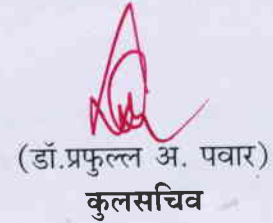 (डॉ.प्रफुल्ल अ. पवार)
कुलसचिव